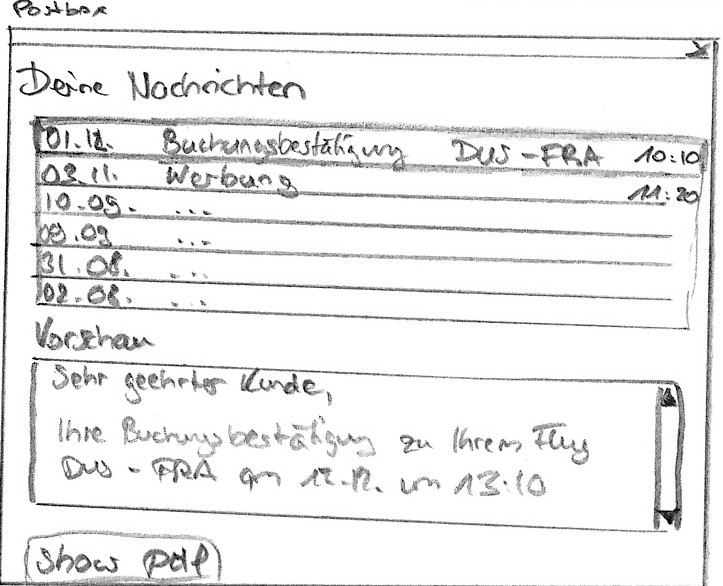 Postbox
X
Deine Nachrichten
01.12. Buchungsbestätigung DUS - FRA 10:10
02.11. Werbung 11:20
10.09. ...
09.09 ...
31.08. ...
02.08. ...
Vorschau
Sehr geehrter Kunde,
Ihre Buchungsbestätigung zu Ihrem Flug
DUS - FRA am 12.12. um 13:10
Show pdf